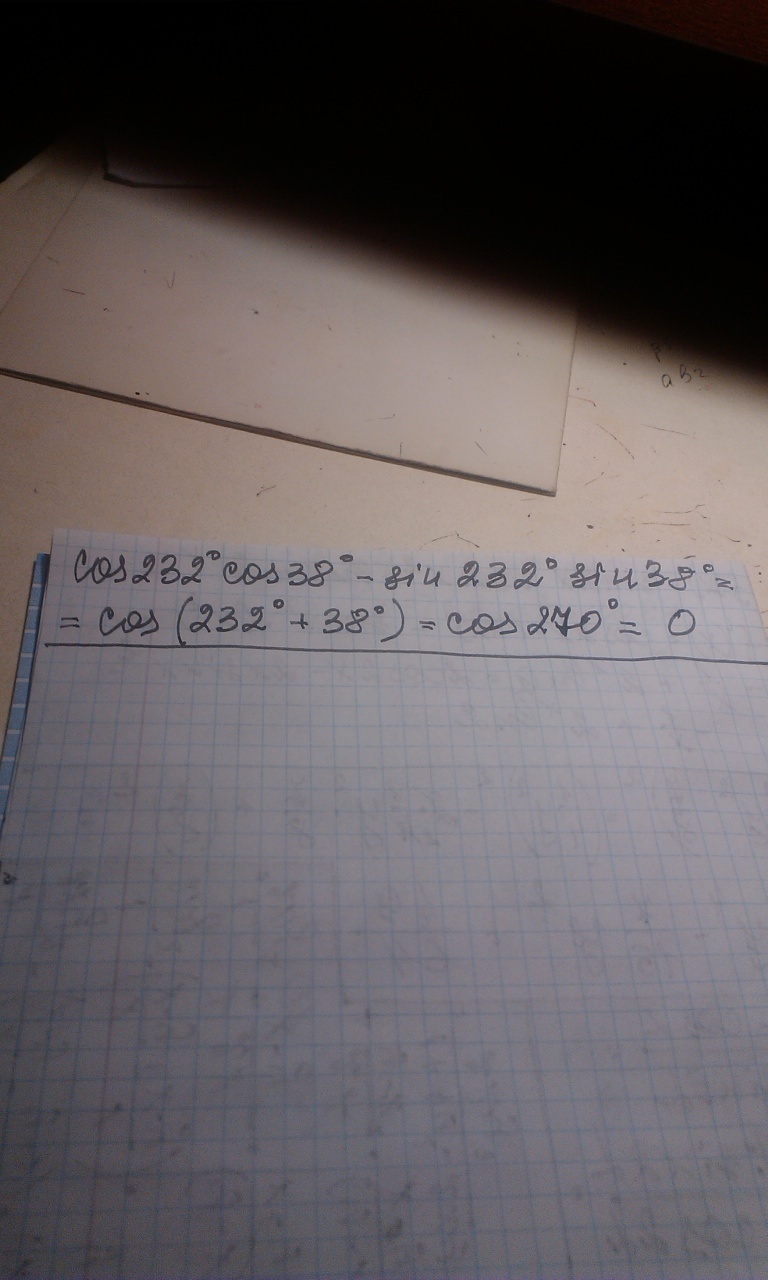 ab=
cos232°cos38°-sin232°sin38°=
=cos(232°+38°)=cos270°=0